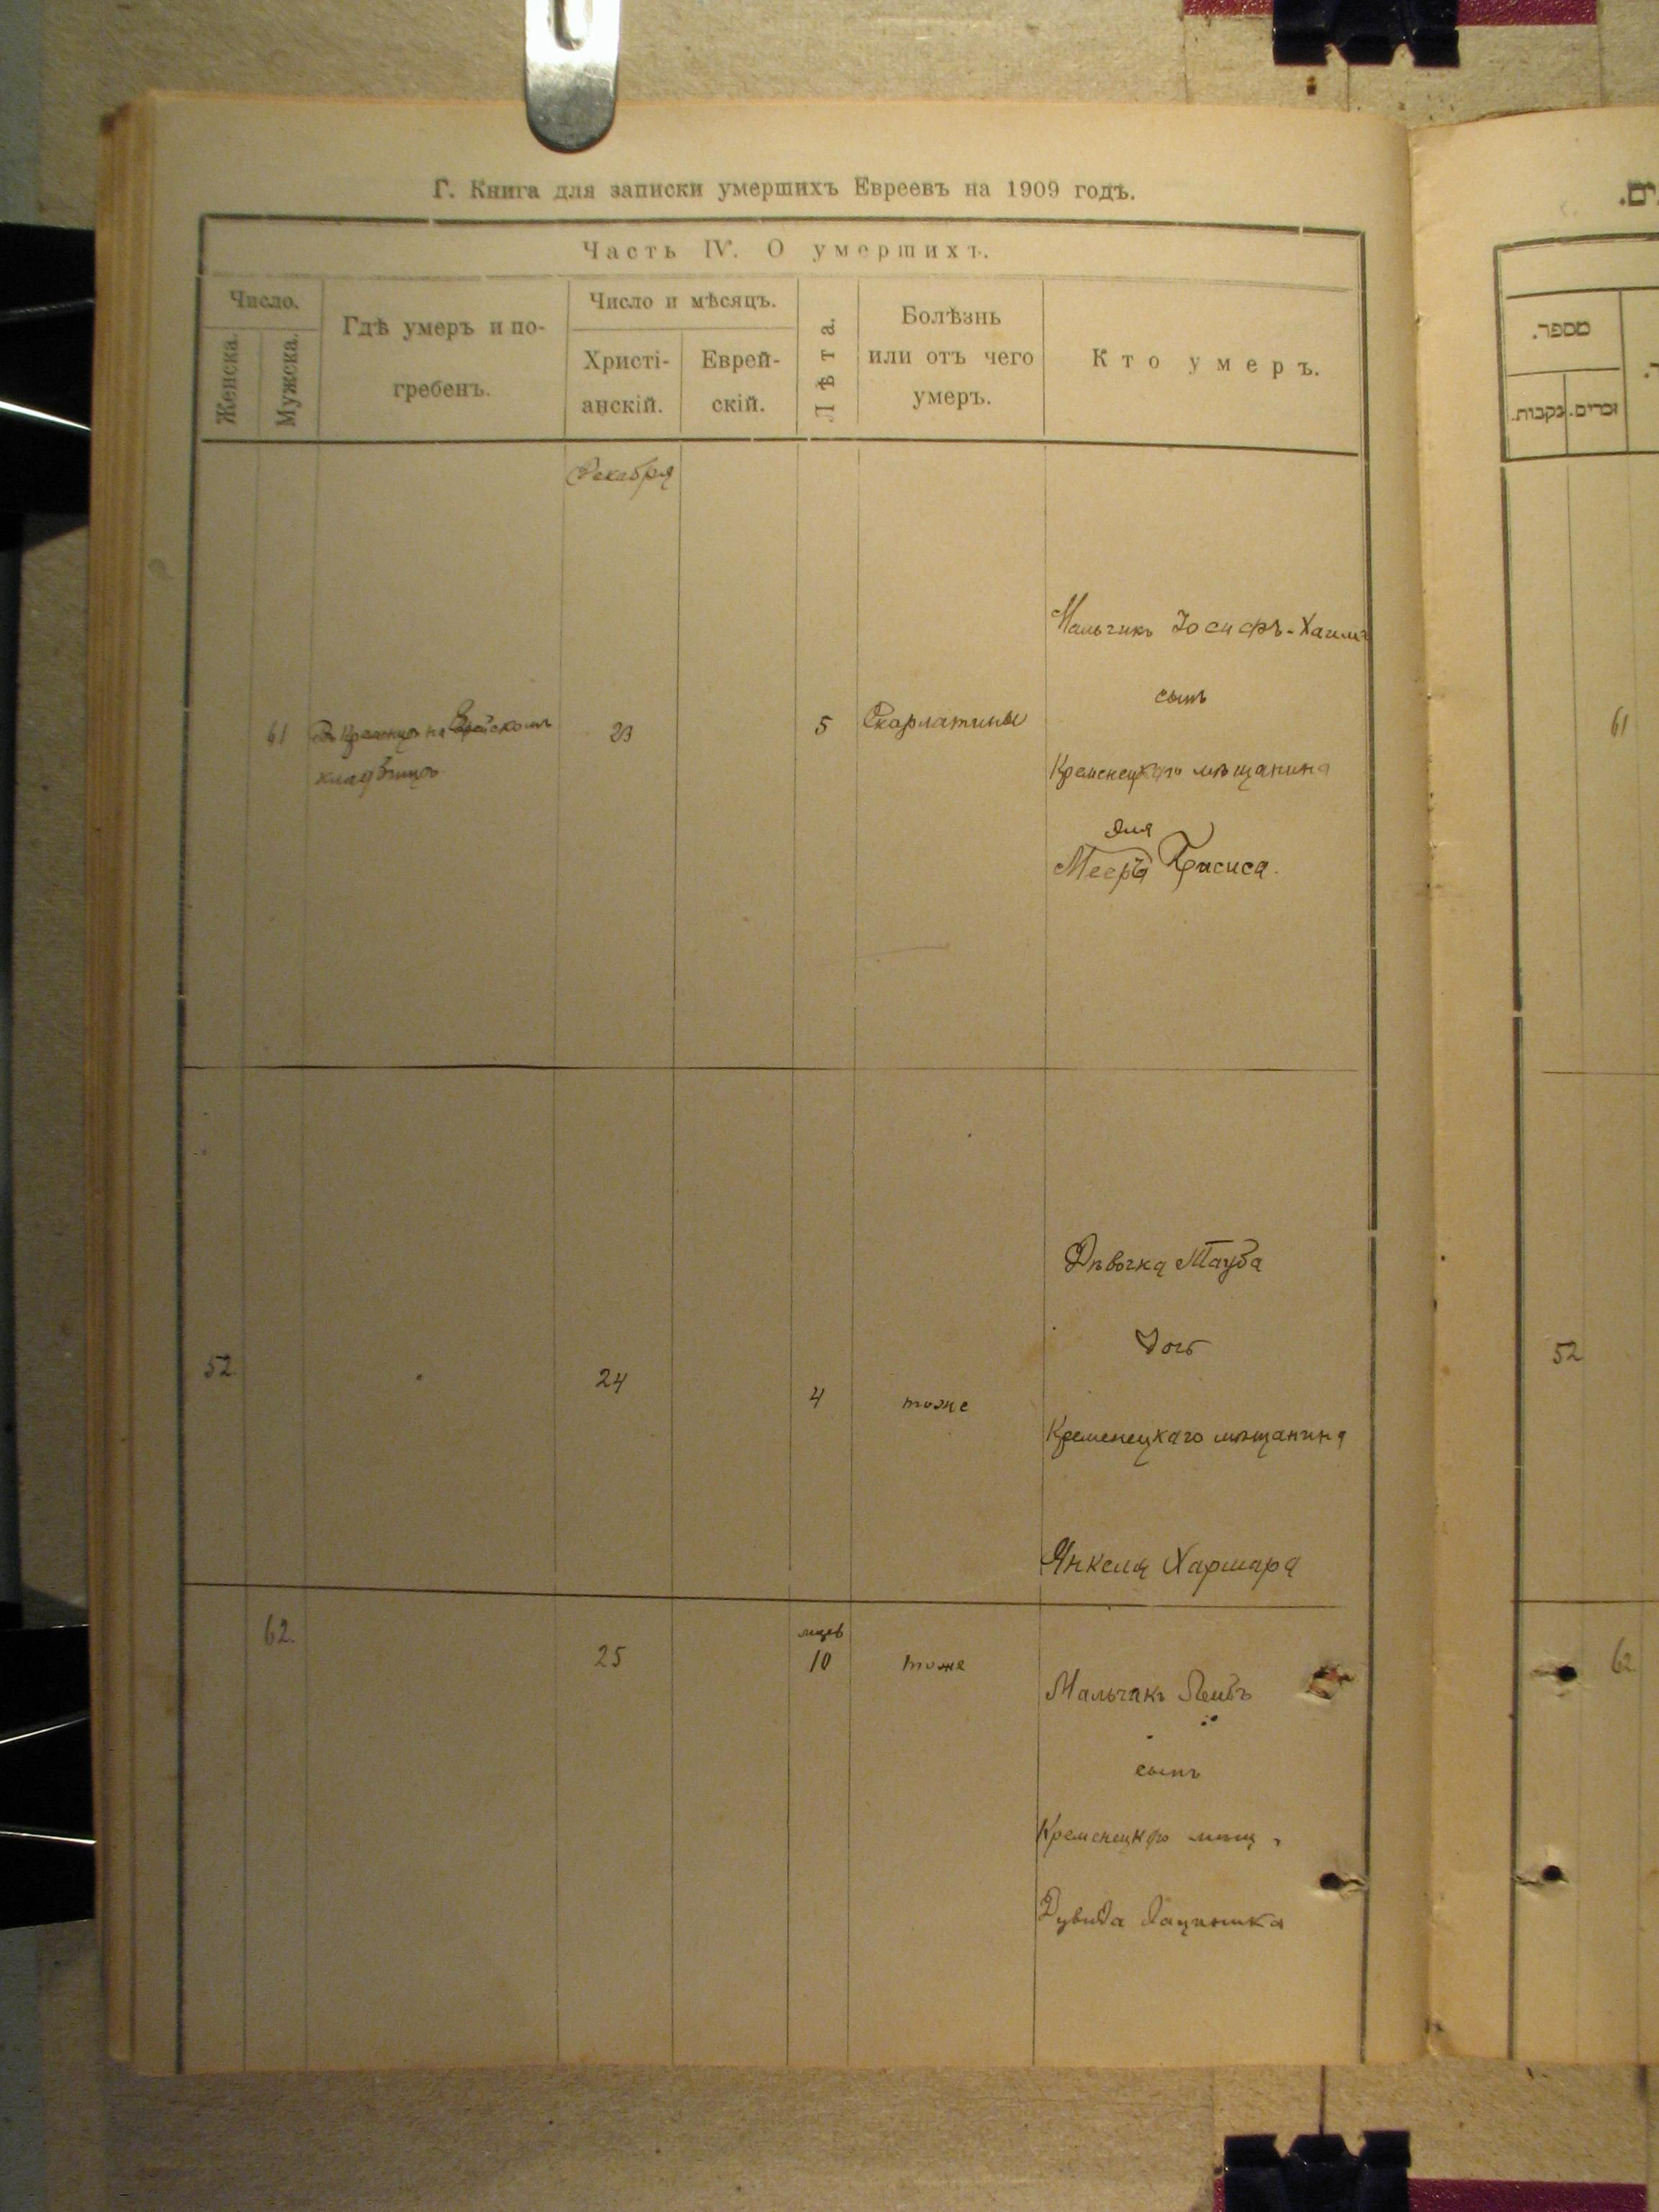 Г. Книга для записки умершихъ Евреевъ на 1909 годъ.
Часть IV. О умершихъ.
Число.
Женска.
Мужска.
Гдѣ умеръ и по-
гребенъ.
Число и мѣсяцъ.
Христі-
анскій.
Еврей-
скій.
Лѣта.
Болѣзнь
или отъ чего
умеръ.
Кто умеръ.
Декабря
61
на Еврейскомъ
кладбищѣ
23
5
Скарлатины
Мальчикъ Іосифъ-Хаимъ
сынъ
Кременецкаго мѣщанина
Меера
52
24
4
тоже
Дѣвочка Тауба
дочь
Кременецкаго мѣщанина
Янкеля Харшара
62.
25
мцев
10
тоже
Мальчикъ Лейбъ
сынъ
Кременецкаго мѣщ.
Дувида
ים.
מספר.
נקבות.
זכרים.
61
52
62